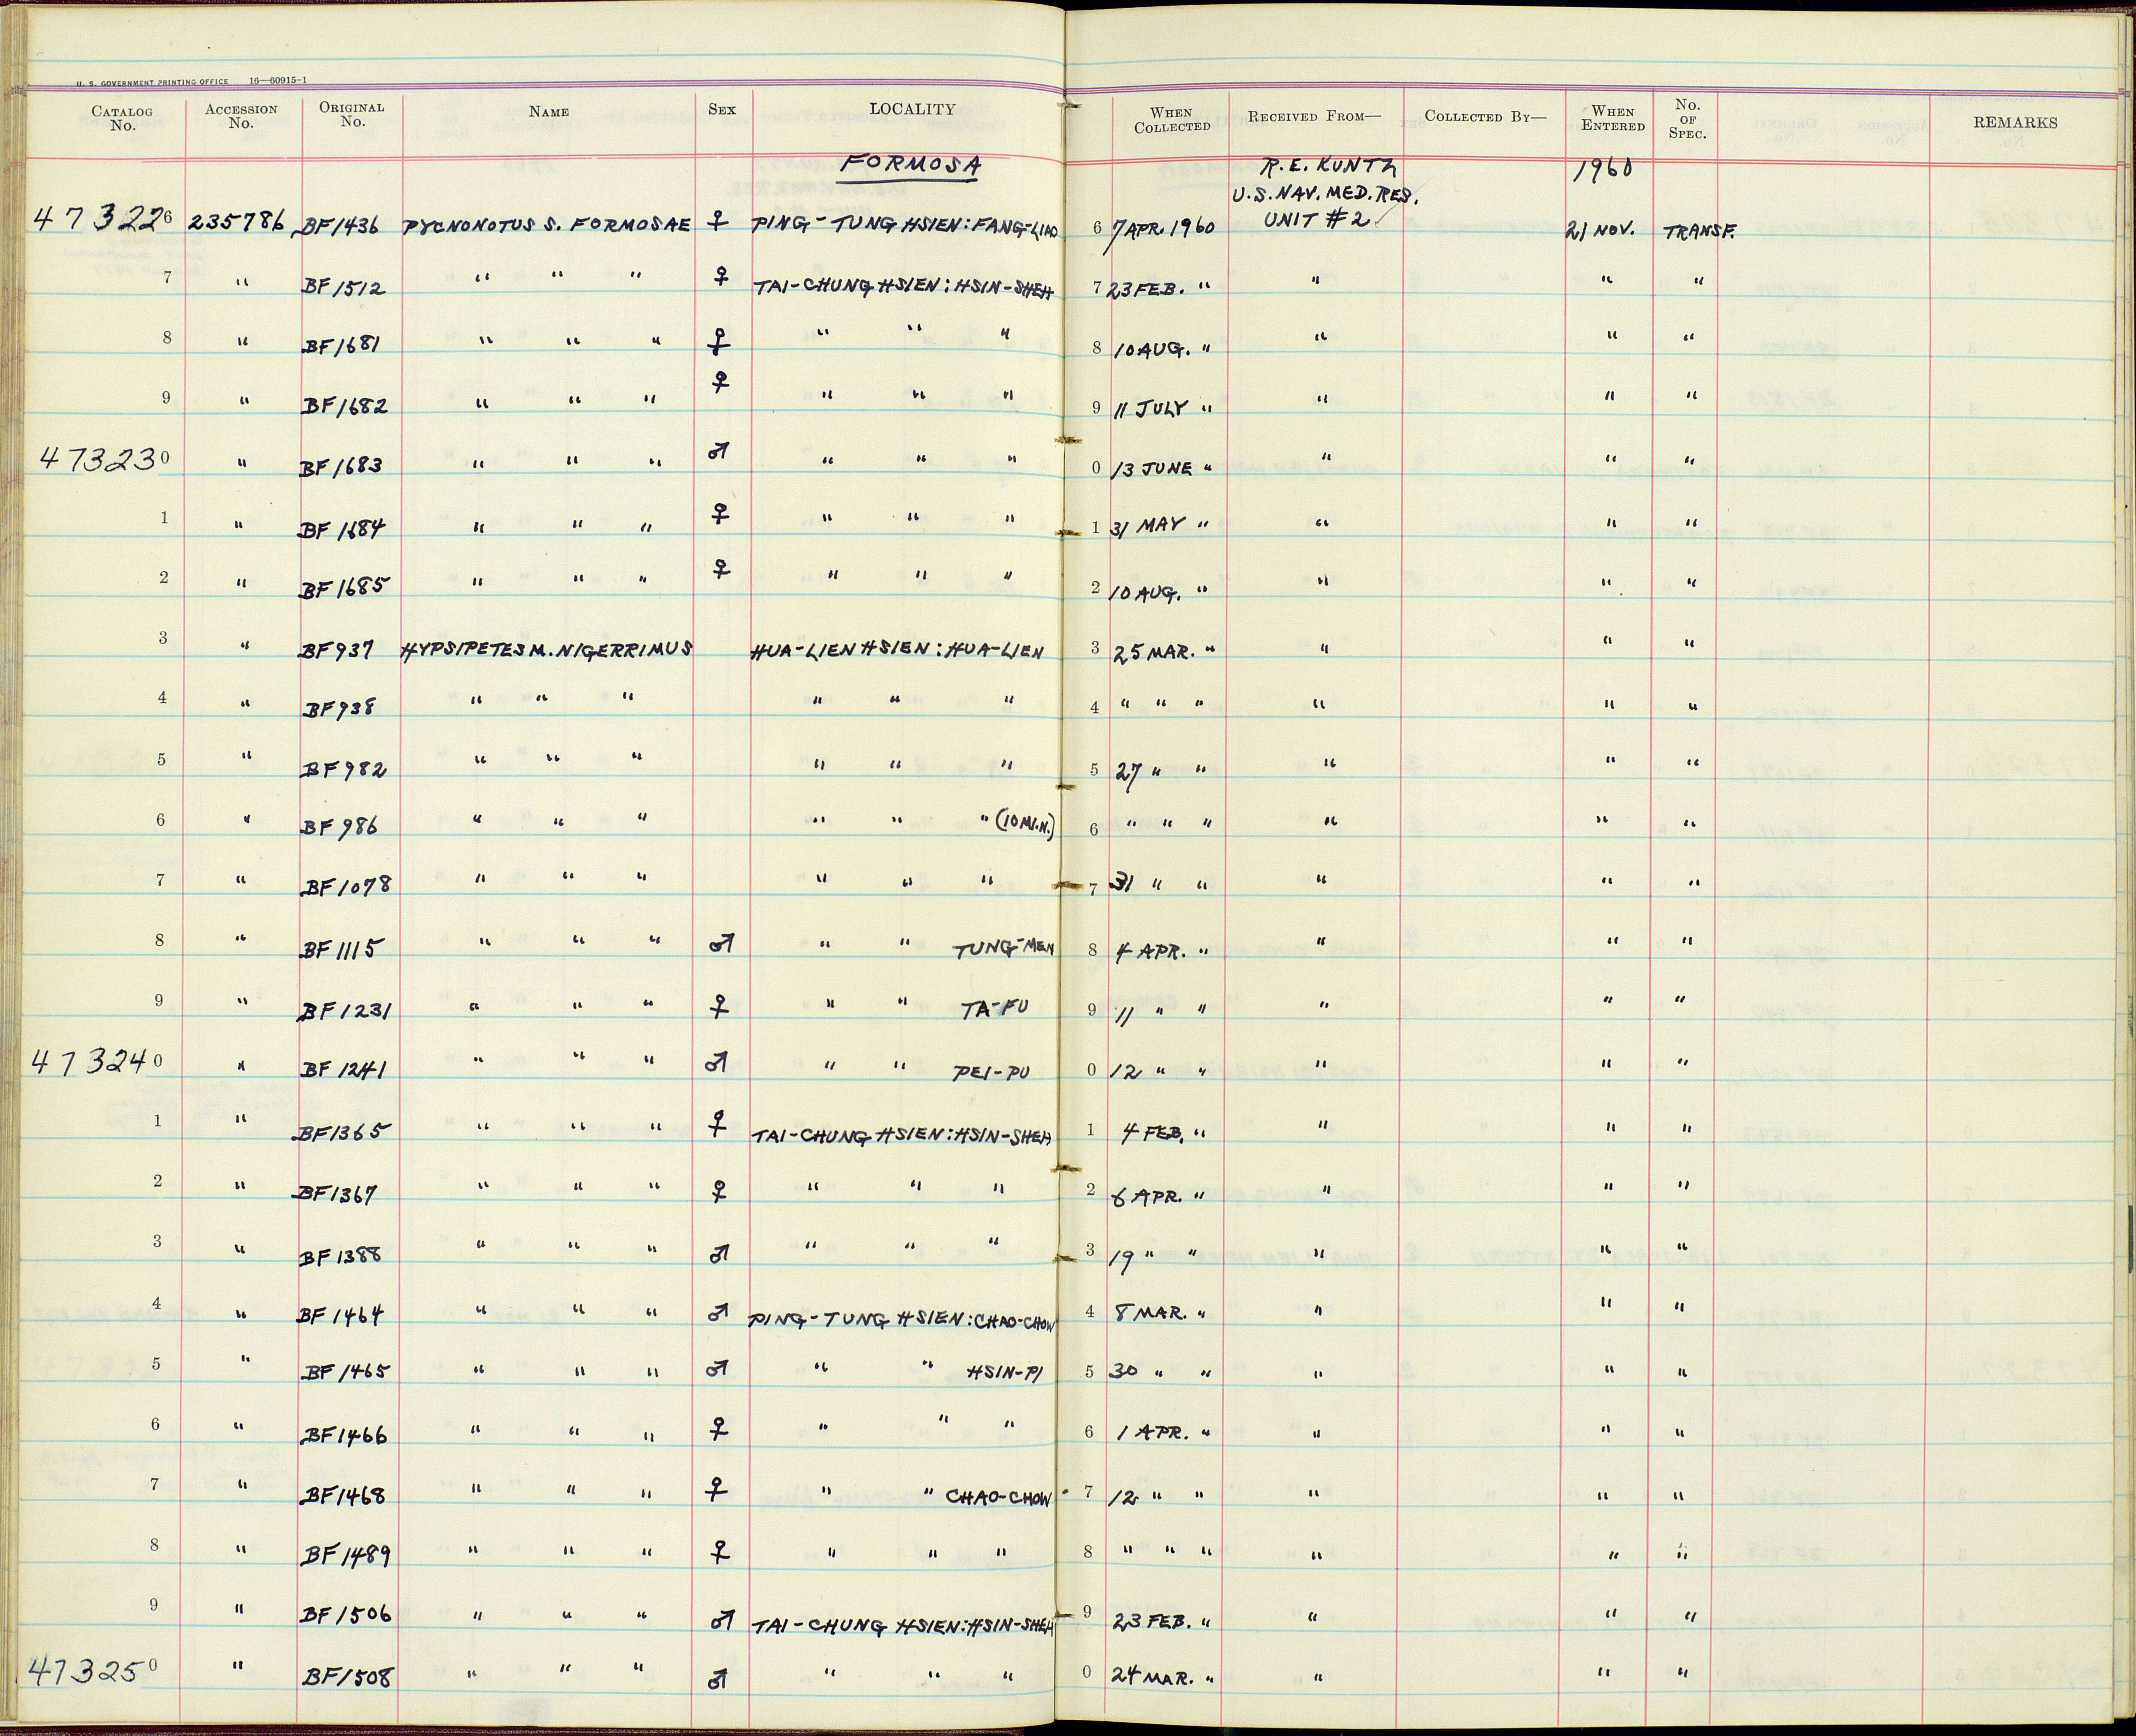 U. S. GOVERNMENT PRINTING OFFICE 16—60915-1
CATALOG No. ACCESSION No. ORIGINAL No. NAME SEX LOCALITY WHEN COLLECTED RECEIVED FROM— COLLECTED BY— WHEN ENTERED No. OF SPEC. REMARKS
FORMOSA R.E. KUNTZ 1960
U.S. NAV. MED. RES.
473226 235786 BF1436 PYCNONOTUS S. FORMOSAE ♀ PING-TUNG HSIEN: FANG-LIAO 6 7 APR. 1960 UNIT #2 21 NOV. TRANSF.
7 " BF1512 " " " ♀ TAI-CHUNG HSIEN: HSIN-SHEH 7 23 FEB. " " " "
8 " BF1681 " " " ♀ " " " 8 10 AUG. " " " "
9 " BF1682 " " " ♀ " " " 9 11 JULY " " " "
473230 " BF1683 " " " ♂ " " " 0 13 JUNE " " " "
1 " BF1684 " " " ♀ " " " 1 31 MAY " " " "
2 " BF1685 " " " ♀ " " " 2 10 AUG. " " " "
3 " BF937 HYPSIPETES M. NIGERRIMUS HUA-LIEN HSIEN: HUA-LIEN 3 25 MAR. " " " "
4 " BF938 " " " " " " 4 " " " " " "
5 " BF982 " " " " " " 5 27 " " " " "
6 " BF986 " " " " " " (10 MI. N.) 6 " " " " " "
7 " BF1078 " " " " " " 7 31 " " " " "
8 " BF1115 " " " ♂ " " TUNG-MEN 8 4 APR. " " " "
9 " BF1231 " " " ♀ " " TA-FU 9 11 " " " " "
473240 " BF1241 " " " ♂ " " PEI-PU 0 12 " " " " "
1 " BF1365 " " " ♀ TAI-CHUNG HSIEN: HSIN-SHEH 1 4 FEB. " " " "
2 " BF1367 " " " ♀ " " " 2 6 APR. " " " "
3 " BF1388 " " " ♂ " " " 3 19 " " " " "
4 " BF1464 " " " ♂ PING-TUNG HSIEN: CHAO-CHOW 4 8 MAR. " " " "
5 " BF1465 " " " ♂ " " HSIN-PI 5 30 " " " " "
6 " BF1466 " " " ♀ " " " 6 1 APR. " " " "
7 " BF1468 " " " ♀ " " CHAO-CHOW 7 12 " " " " "
8 " BF1489 " " " ♀ " " " 8 " " " " " "
9 " BF1506 " " " ♂ TAI-CHUNG HSIEN: HSIN-SHEH 9 23 FEB. " " " "
473250 " BF1508 " " " ♂ " " " 0 24 MAR. " " " "